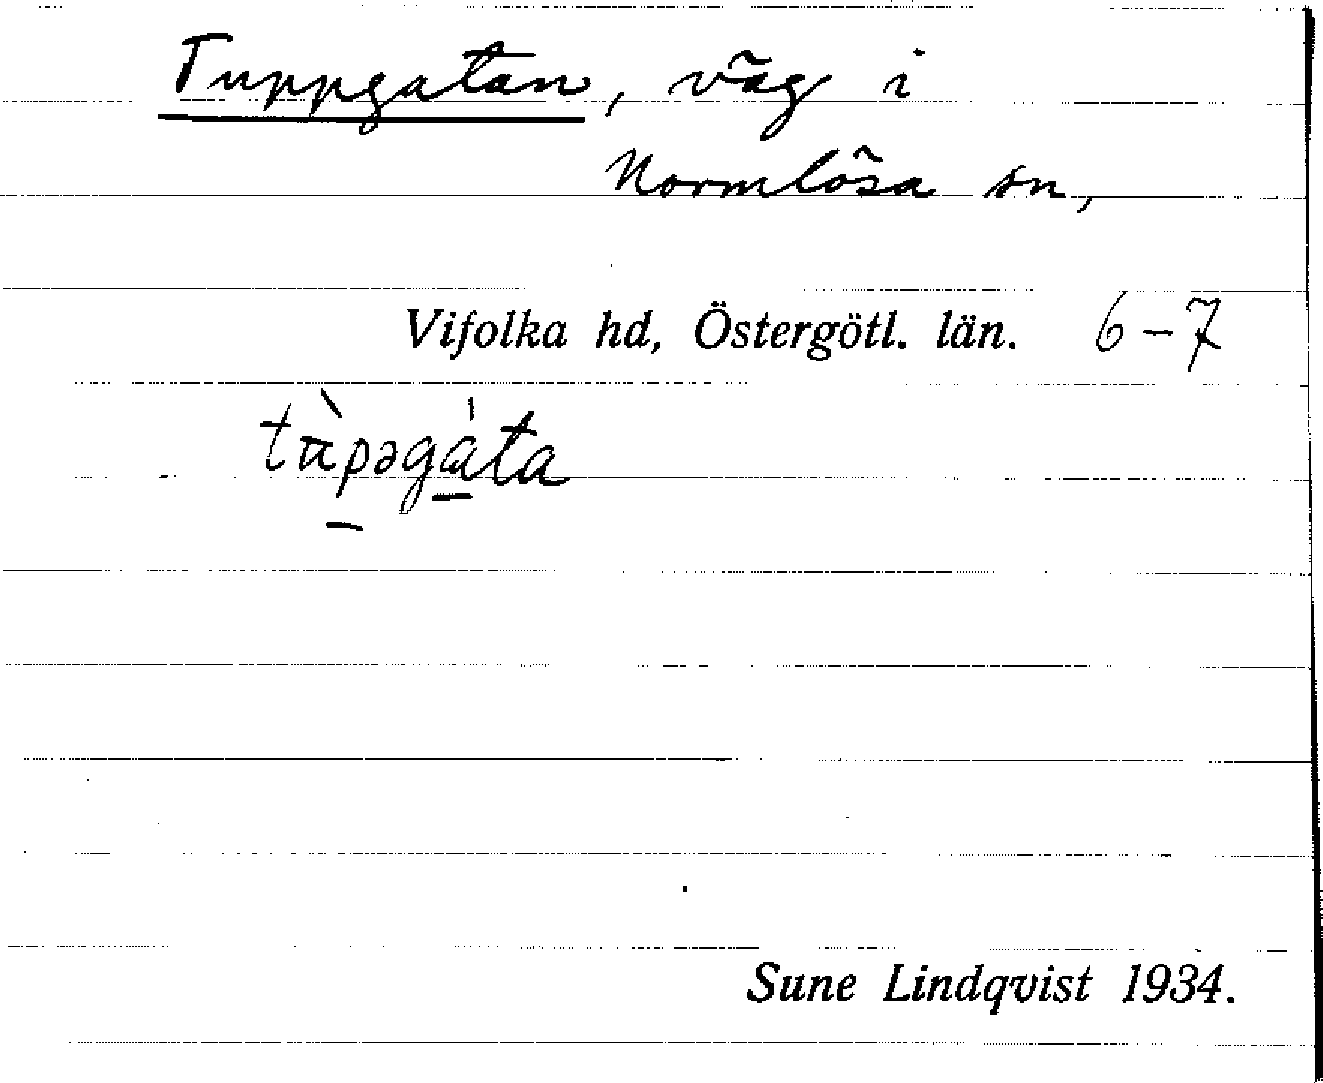 Tuppgatan, väg i
Normlösa sn,
Vifolka hd, Östergötl. län. 6-7
tu̇̀pəgáta
Sune Lindqvist 1934.